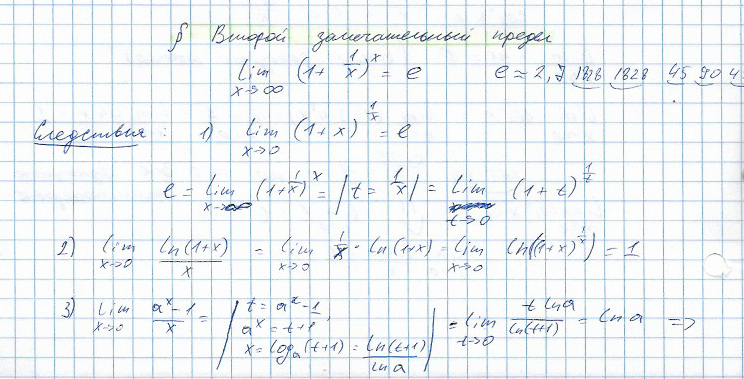 § Второй замечательный предел
lim x→∞ (1+ 1/x)^x = e e ≈ 2,7 1828 1828 45 90 4
Следствия : 1) lim x→0 (1+x)^(1/x) = e
e = lim x→∞ (1+1/x)^x = | t = 1/x | = lim t→0 (1+t)^(1/t)
2) lim x→0 ln(1+x)/x = lim x→0 1/x · ln(1+x) = lim x→0 ln((1+x)^(1/x)) = 1
3) lim x→0 (a^x-1)/x = | t = a^x-1, a^x = t+1, x = log_a(t+1) = ln(t+1)/ln a | = lim t→0 (t ln a)/(ln(t+1)) = ln a ⇒